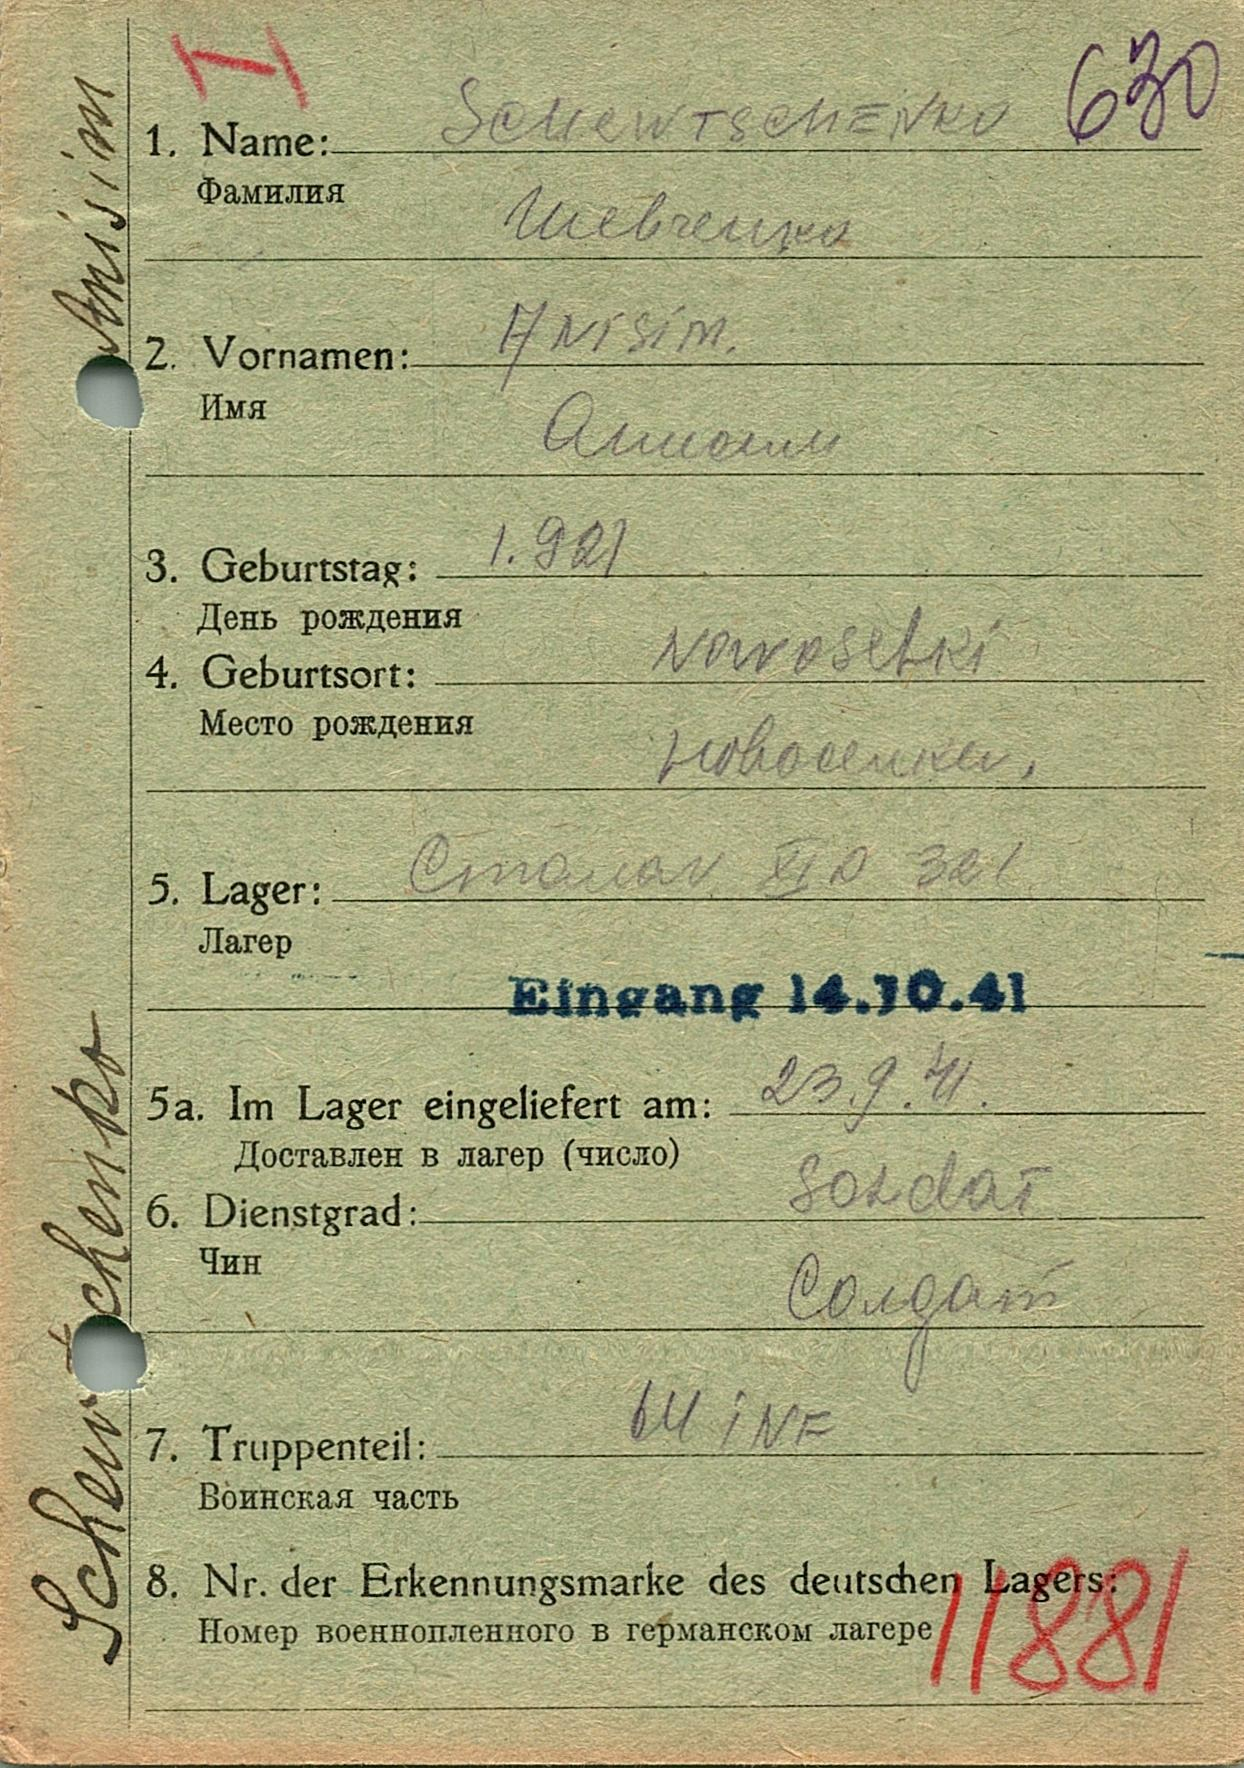 I
630
1. Name: SCHEWTSCHENKO
Фамилия
Шевченко
2. Vornamen: ANISIM.
Имя
Анисим
3. Geburtstag: 1.921
День рождения
4. Geburtsort: Nowoselki
Место рождения
Новоселки,
5. Lager: Сталаг XI D 321
Лагер
Eingang 14.10.41
5a. Im Lager eingeliefert am: 23.9.41.
Доставлен в лагер (число)
6. Dienstgrad: Soldat
Чин
Солдат
7. Truppenteil: INF
Воинская часть
8. Nr. der Erkennungsmarke des deutschen Lagers:
Номер военнопленного в германском лагере 11881
Schewtschenko Anisim